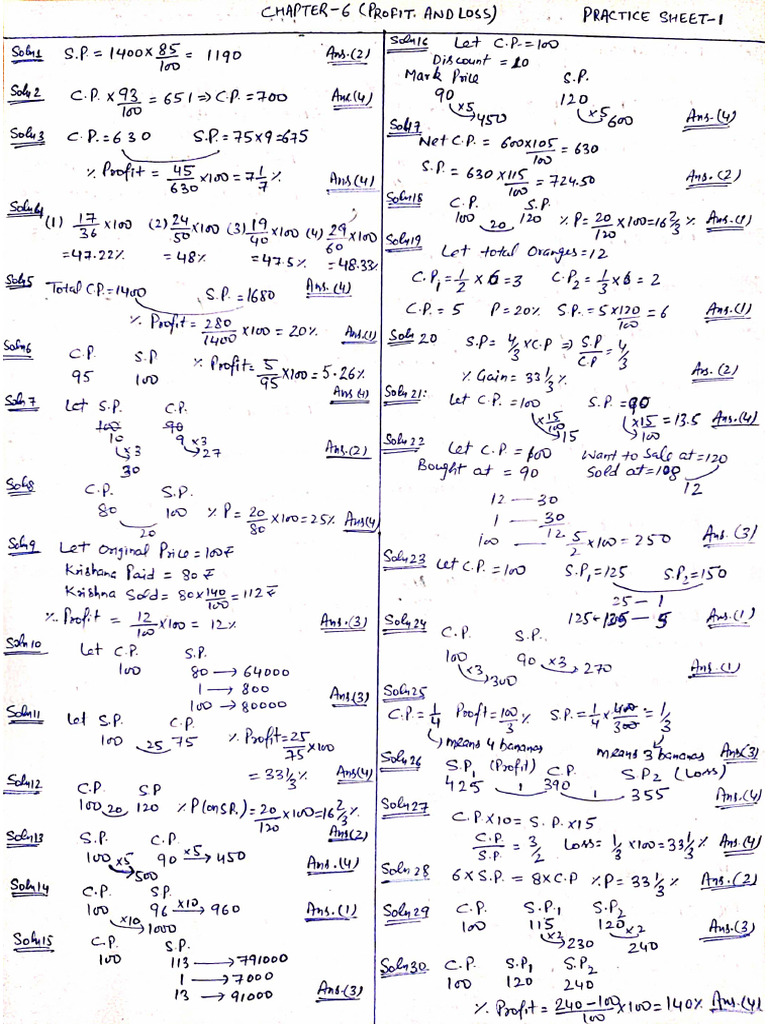 CHAPTER-6 (PROFIT. AND LOSS) PRACTICE SHEET-1
Soln1 S.P. = 1400 x 85/100 = 1190 Ans.(2)
Soln2 C.P. x 93/100 = 651 => C.P. = 700 Ans(4)
Soln3 C.P. = 630 S.P. = 75 x 9 = 675
% Profit = 45/630 x 100 = 7 1/7 % Ans(4)
Soln4 (1) 17/36 x 100 (2) 24/50 x 100 (3) 19/40 x 100 (4) 29/60 x 100
= 47.22% = 48% = 47.5% = 48.33%
Ans.(4)
Soln5 Total C.P. = 1400 S.P. = 1680
% Profit = 280/1400 x 100 = 20% Ans.(1)
Soln6 C.P. S.P % Profit = 5/95 x 100 = 5.26%
95 100
Ans(4)
Soln7 Let S.P. C.P.
100 90
10 x3 9 x3 27 Ans.(2)
30
Soln8 C.P. S.P.
80 100 % P = 20/80 x 100 = 25% Ans(4)
20
Soln9 Let Original Price = 100₹
Krishana Paid = 80 ₹
Krishna Sold = 80 x 140/100 = 112 ₹
% Profit = 12/100 x 100 = 12% Ans.(3)
Soln10 Let C.P. S.P.
100 80 → 64000
1 → 800
100 → 80000 Ans(3)
Soln11 Let S.P. C.P.
100 25 75 % Profit = 25/75 x 100
= 33 1/3 % Ans(4)
Soln12 C.P. S.P
100 20 120 % P(on S.P.) = 20/120 x 100 = 16 2/3 %
Ans(2)
Soln13 S.P. C.P.
100 x5 90 x5 → 450
500 Ans.(4)
Soln14 C.P. S.P.
100 96 x10 → 960 Ans.(1)
x10 1000
Soln15 C.P. S.P.
100 113 → 791000
1 → 7000
13 → 91000 Ans.(3)
Soln16 Let C.P. = 100
Discount = 10
Mark Price S.P.
90 120
x5 450 x5 600 Ans.(4)
Soln17 Net C.P. = 600 x 105/100 = 630
S.P. = 630 x 115/100 = 724.50 Ans.(2)
Soln18 C.P. S.P.
100 20 120 % P = 20/120 x 100 = 16 2/3 % Ans.(1)
Soln19 Let total Oranges = 12
C.P1 = 1/2 x 6 = 3 C.P2 = 1/3 x 6 = 2
C.P. = 5 P = 20% S.P. = 5 x 120/100 = 6 Ans.(1)
Soln20 S.P = 4/3 x C.P => S.P/C.P = 4/3
% Gain = 33 1/3 % Ans.(2)
Soln21: Let C.P. = 100 S.P. = 90
x 15/100 15 x 15/100 = 13.5 Ans.(4)
Soln22 Let C.P. = 100 Want to Sale at = 120
Bought at = 90 Sold at = 108
12
12 — 30
1 — 30/12
100 — 5/2 x 100 = 250 Ans.(3)
Soln23 Let C.P. = 100 S.P1 = 125 S.P2 = 150
25 – 1
125 – 5 Ans.(1)
Soln24 C.P. S.P.
100 90 x3 270
x3 300 Ans.(1)
Soln25
C.P. = 1/4 Profit = 100/3 % S.P. = 1/4 x 400/300 = 1/3
means 4 bananas means 3 bananas Ans(3)
Soln26 S.P1 (Profit) C.P. S.P2 (Loss)
425 1 390 1 355 Ans.(4)
Soln27 C.P. x 10 = S.P. x 15
C.P./S.P. = 3/2 Loss = 1/3 x 100 = 33 1/3 % Ans.(4)
Soln28 6 x S.P. = 8 x C.P % P = 33 1/3 % Ans.(2)
Soln29 C.P. S.P.1 S.P2
100 115 120 x2 Ans.(3)
x2 230 240
Soln30 C.P. S.P1 S.P2
100 120 240
% Profit = 240-100/100 x 100 = 140% Ans.(4)